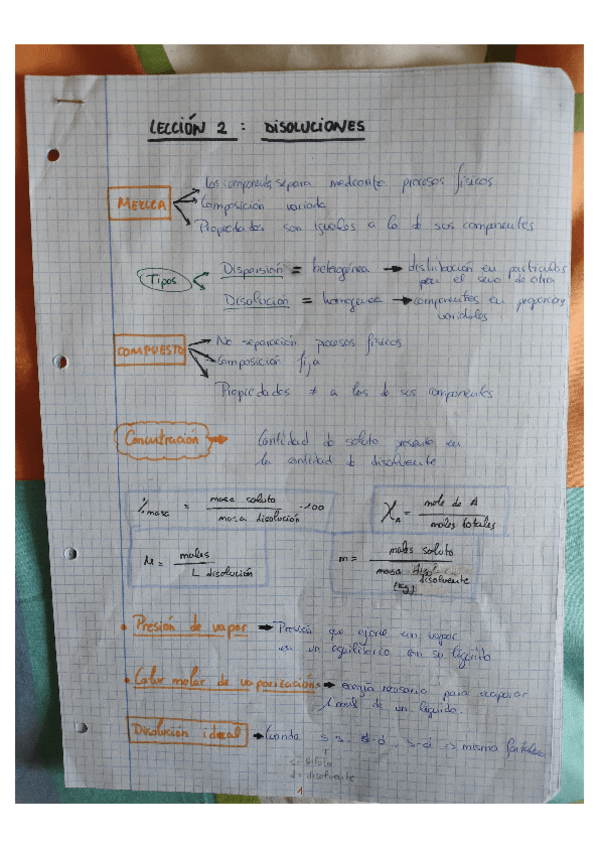 LECCIÓN 2 : DISOLUCIONES
MEZCLA
los components separa mediante procesos físicos
Composición variada
Propiedades son iguales a lo d sus componentes
Tipos
Dispersión = heterogénea → distribución en partículas
por el seno de otra
Disolución = homogenea → componentes en
variables
COMPUESTO
No separación procesos físicos
Composición fija
Propiedades ≠ a los d sus componentes
Concentración →
Cantidad de soluto presente en
la cantidad d disolvente
% masa = masa soluto / masa disolución · 100
χA = mole de A / moles totales
M = moles / L disolución
m = moles soluto / masa disolvente
(kg)
• Presión de vapor → Presión que ejerce un vapor
en un equilibrio con su líquido
• Calor molar de vaporización → energía necesaria para
1 mol de un líquido.
Disolución ideal → Cuando s s, d-d, s-d misma
s = soluto
d = disolvente
1